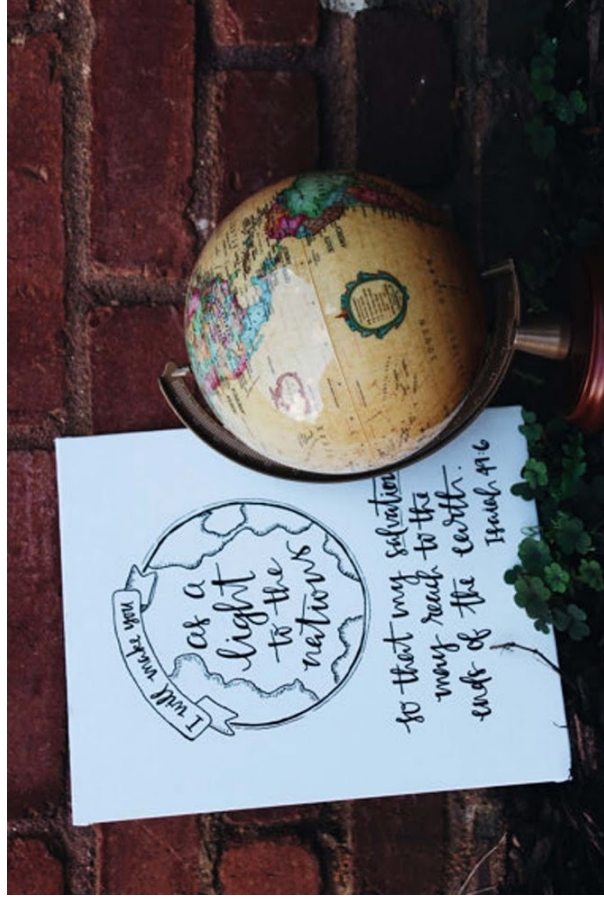 I will make you
as a
light
to the
nations
so that my salvation
may reach to the
ends of the earth.
Isaiah 49:6